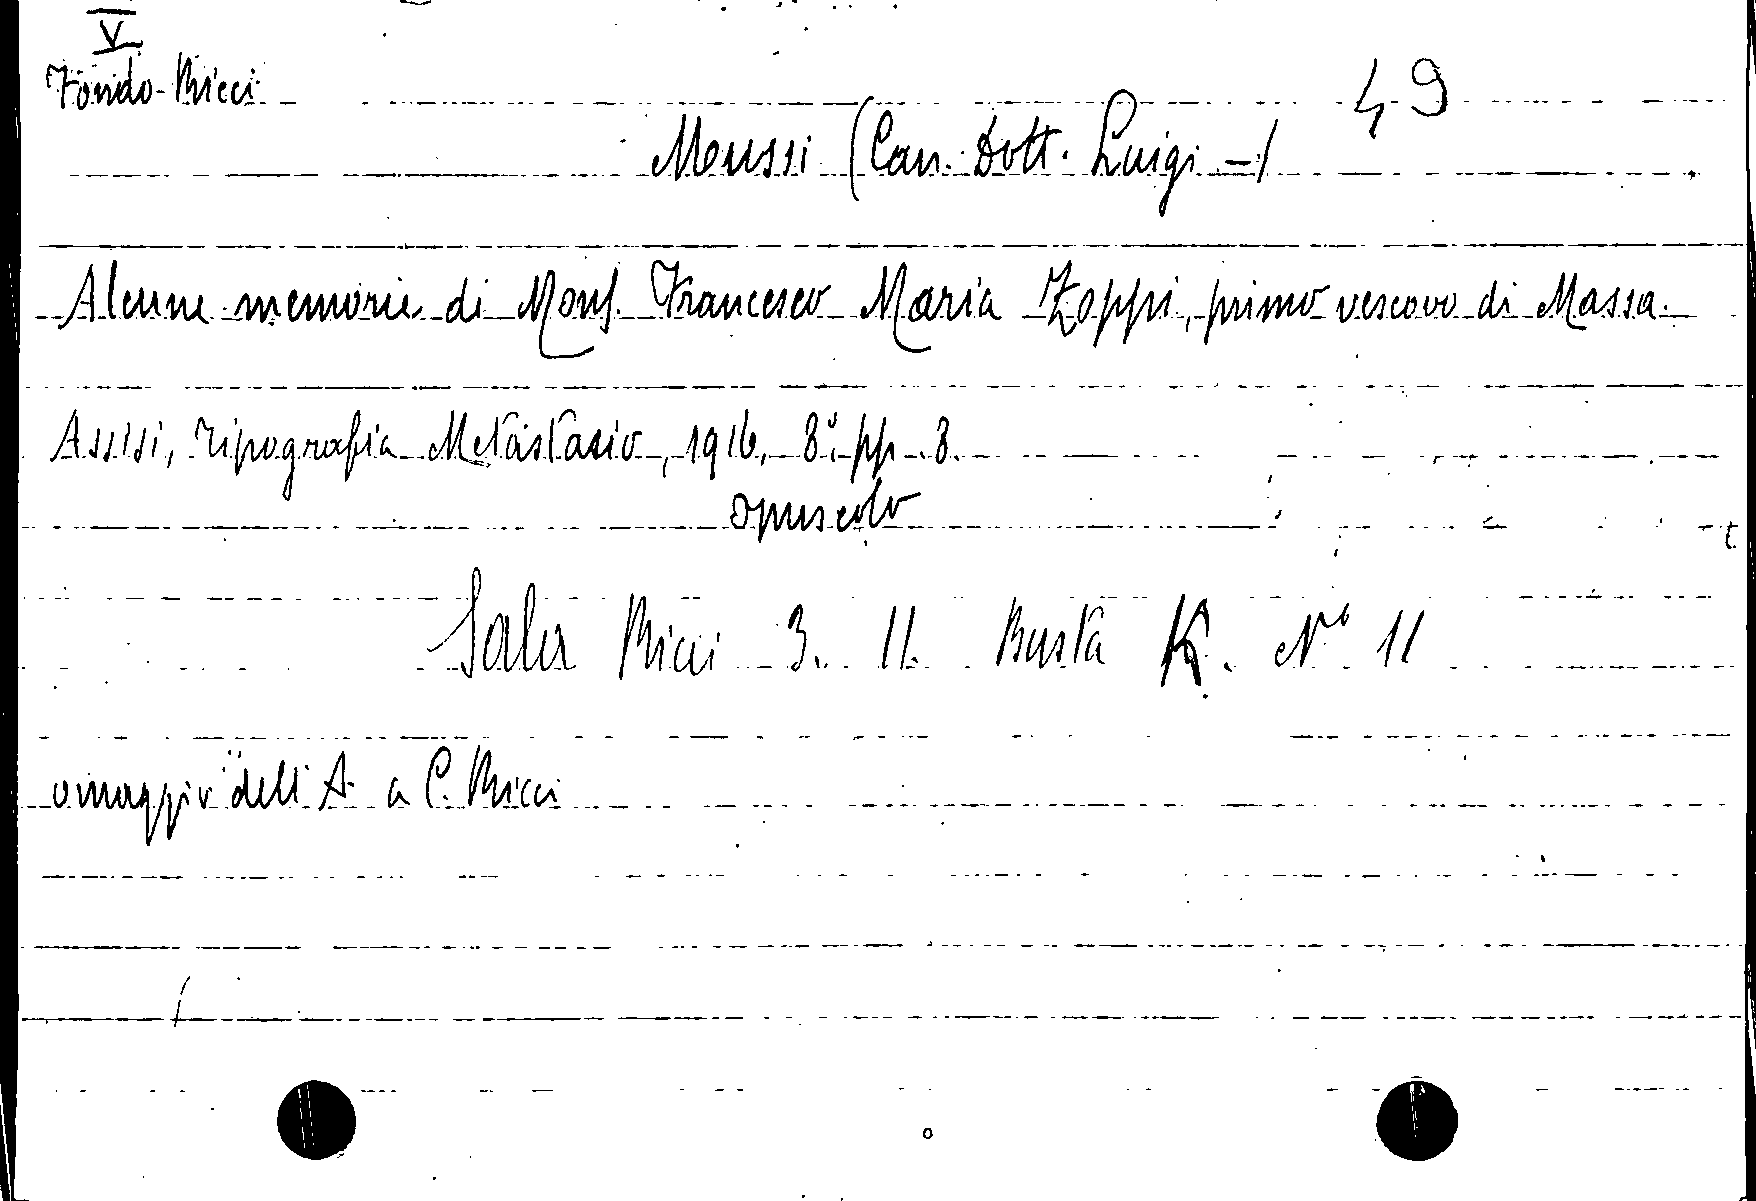 V
Fondo Ricci
49
Mussi (Can. Dott. Luigi -)
Alcune memorie di Mons. Francesco Maria Zoppi, primo vescovo di Massa.
Assisi, Tipografia Metastasio, 1916, 8° pp. 8.
opuscolo
Sala Ricci 3. 11. Busta K. N° 11
omaggio dell'A. a C. Ricci